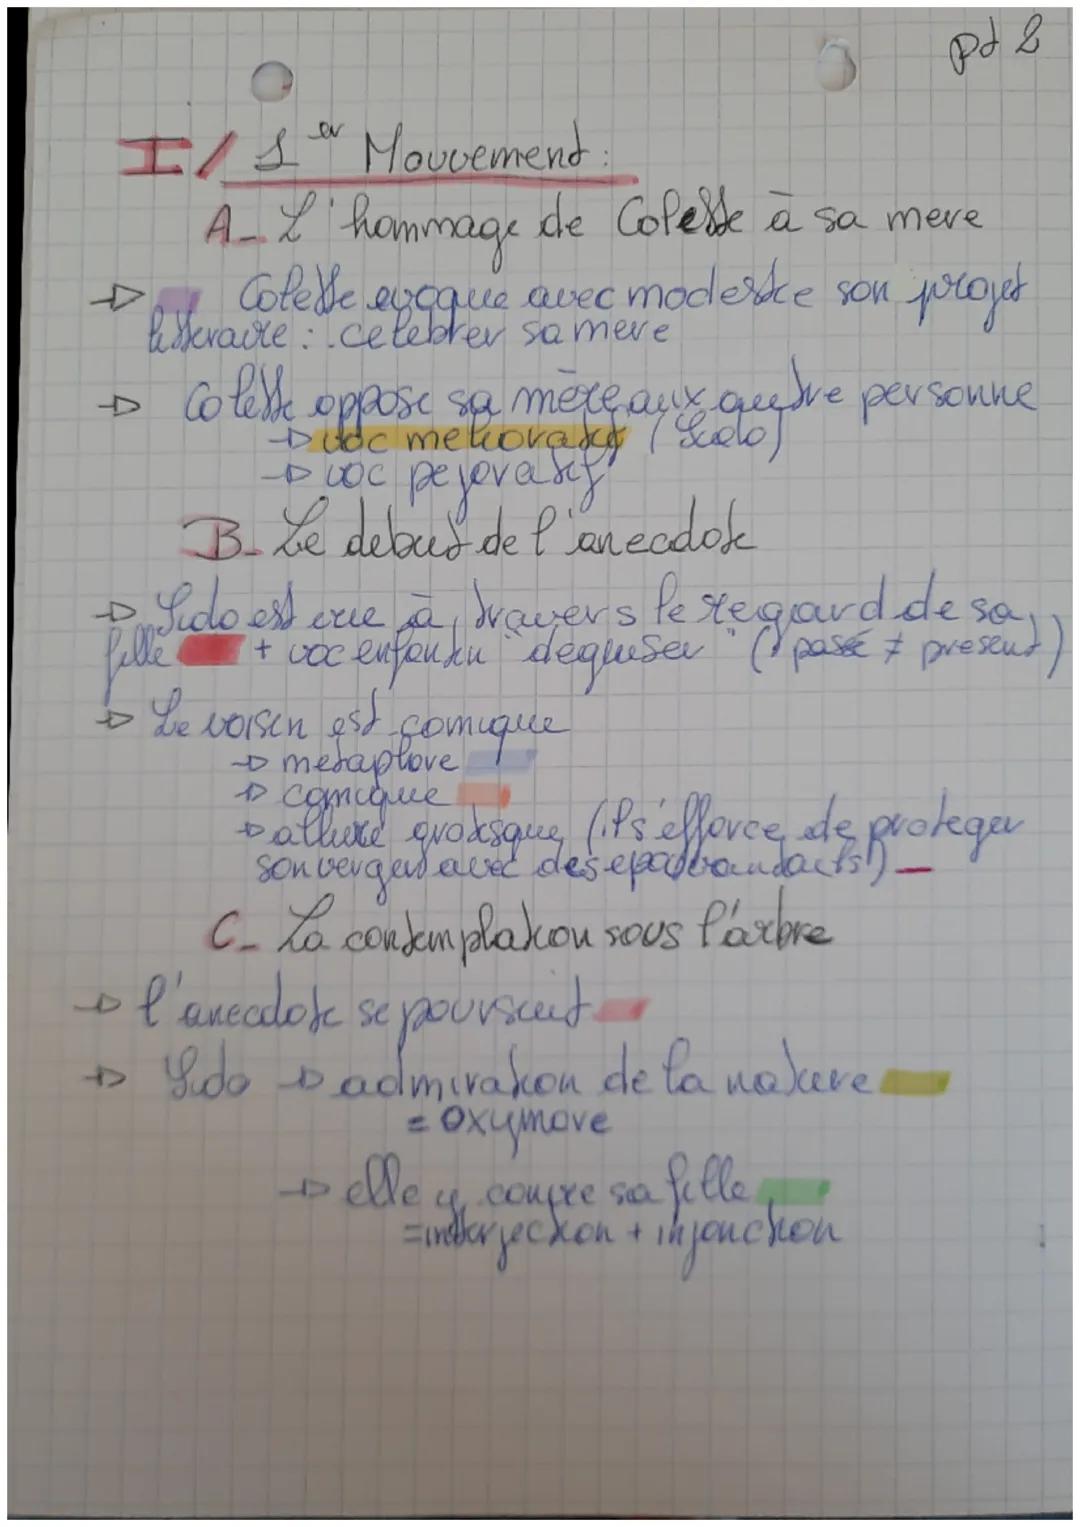 pt 2
I/ 1er Mouvement :
A_ L'hommage de Colette à sa mere
→ Colette evoque avec modestie son projet
litteraire : celebrer sa mere
→ Colette oppose sa mère aux autre personne
→ voc melioratif (Sido)
→ voc pejoratif
B_ Le debut de l'anecdote
→ Sido est vue à travers le regard de sa
fille + voc enfantin "deguiser" (passé ≠ present)
→ Le voisin est comique
→ metaphore
→ comique
→ allure grotesque (il s'efforce de proteger
son verger avec des epouvantails!)
C_ La contemplation sous l'arbre
→ l'anecdote se poursuit
→ Sido → admiration de la nature
= oxymore
→ elle y convie sa fille
= interjection + injonction